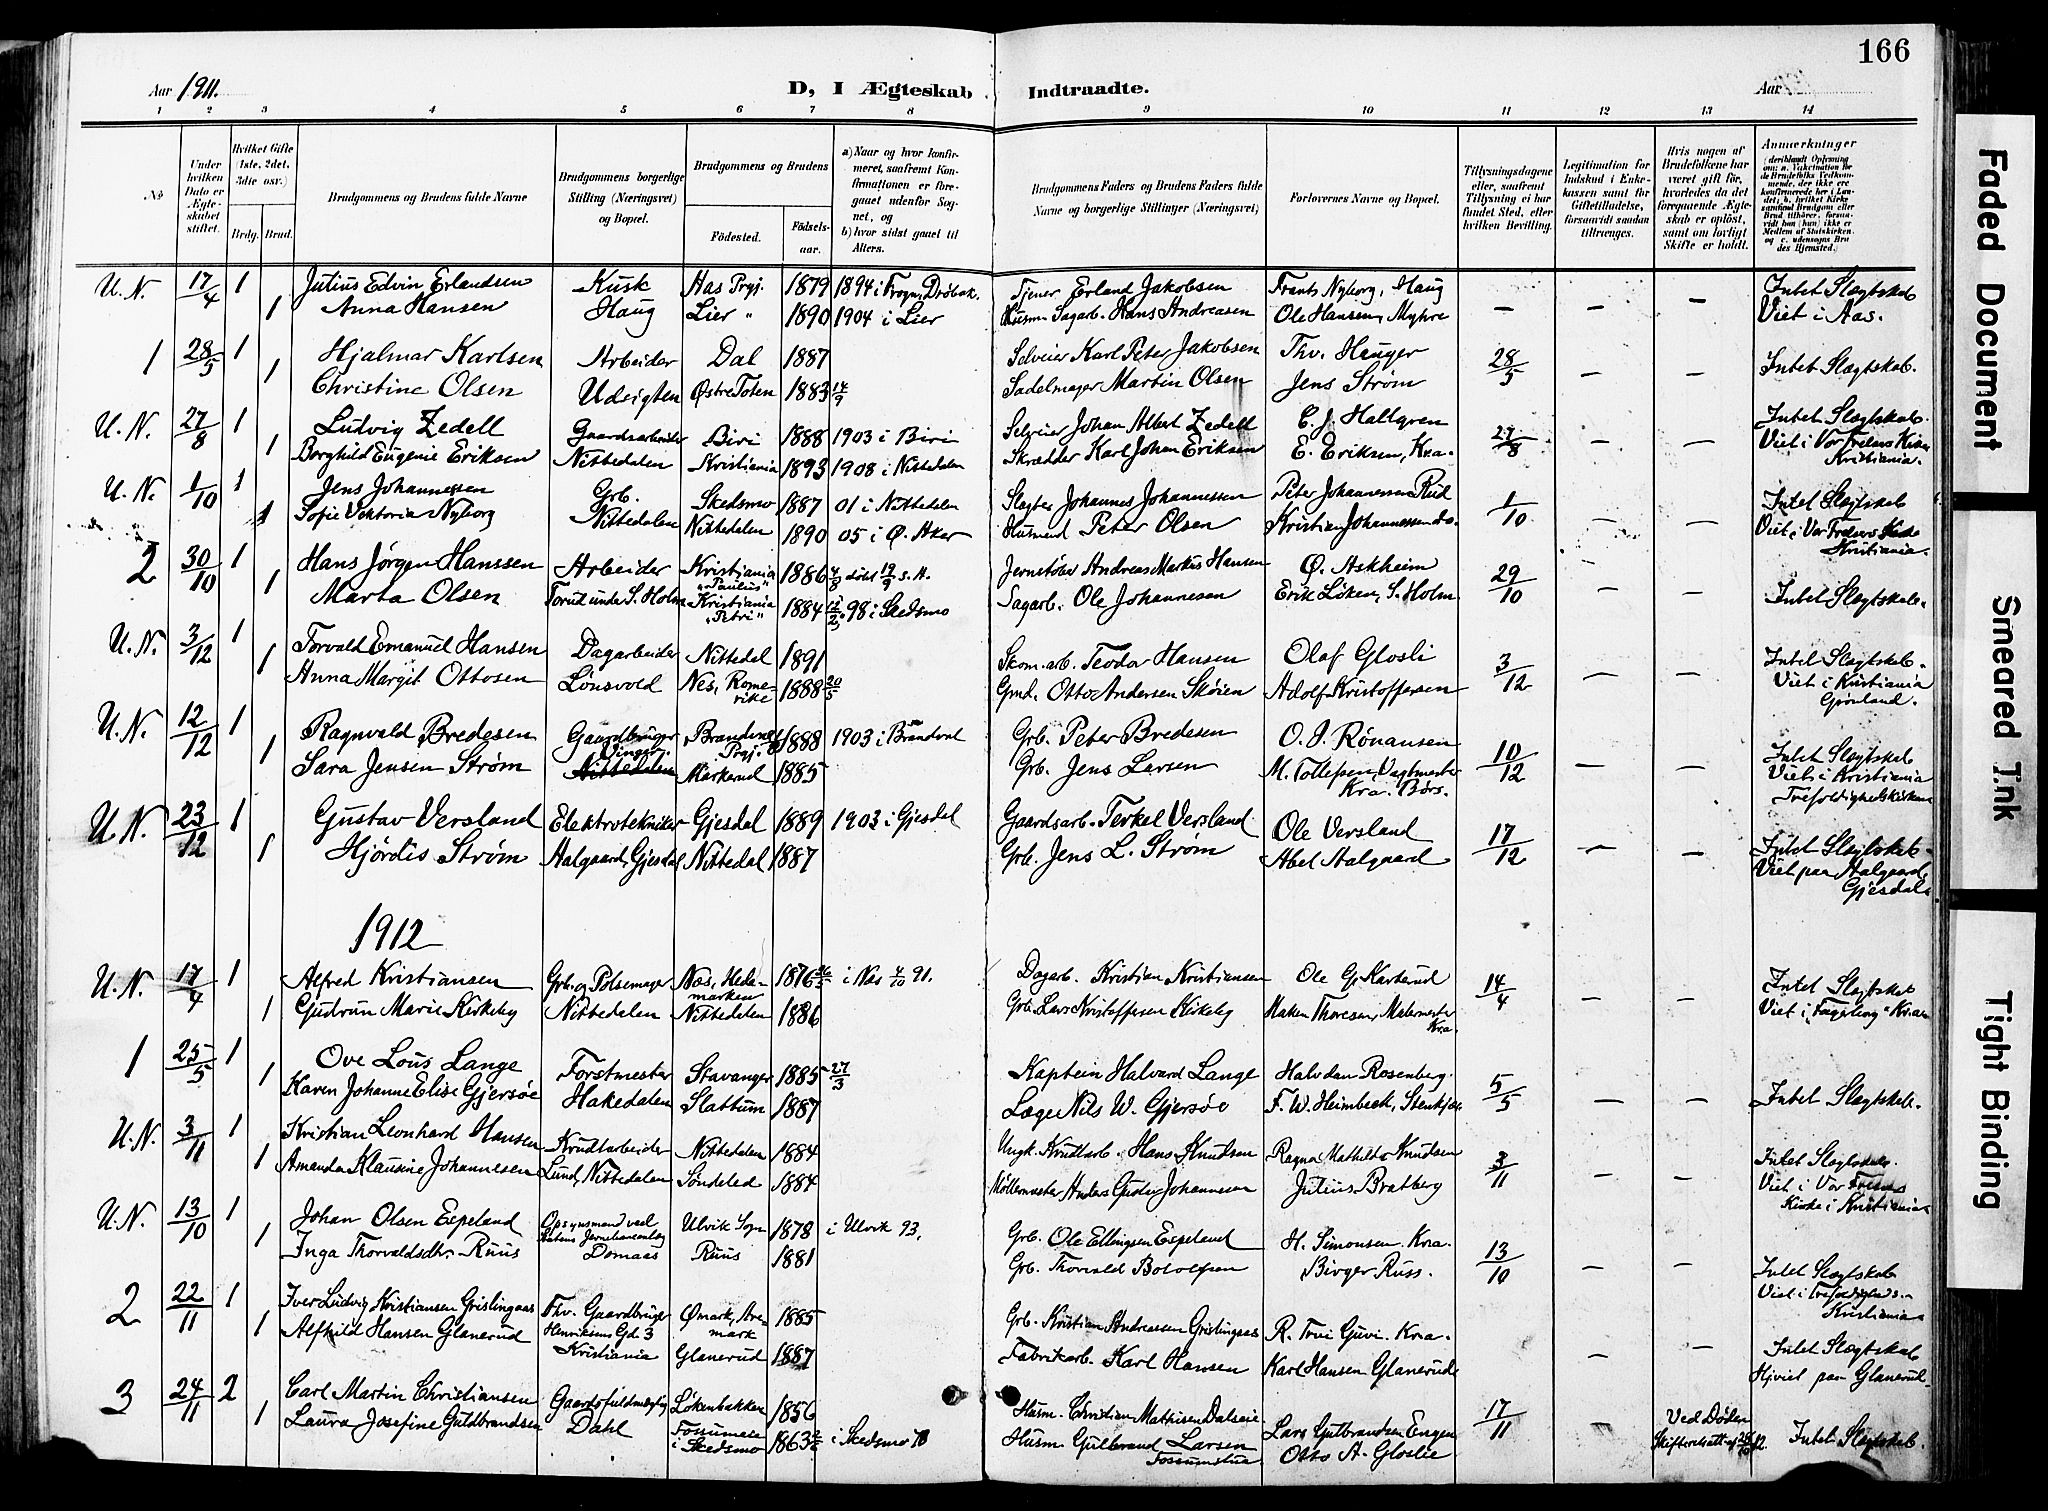 166
Aar 1911.
D, I Ægteskab Indtraadte.
Aar
1 2 3 4 5 6 7 8 9 10 11 12 13 14
No
Under hvilken Dato er Ægteskabet stiftet.
Hvilket Gifte (1ste, 2det, 3die osv.)
Brdg. Brud.
Brudgommens og Brudens fulde Navne
Brudgommens borgerlige Stilling (Næringsvei) og Bopæl.
Brudgommens og Brudens
Fødested. Fødselsaar.
a) Naar og hvor konfirmeret, saafremt Konfirmationen er foregaaet udenfor Sognet, og
b) hvor sidst gaaet til Alters.
Brudgommens Faders og Brudens Faders fulde Navne og borgerlige Stillinger (Næringsvei)
Forlovernes Navne og Bopæl.
Tillysningsdagene eller, saafremt Tillysning ei har fundet Sted, efter hvilken Bevilling.
Legitimation for Indskud i Enkekassen samt for Giftetilladelse, forsaavidt saadan tiltrænges.
Hvis nogen af Brudefolkene har været gift før, hvorledes da det foregaaende Ægteskab er opløst, samt om lovligt Skifte er holdt.
Anmærkninger
U.N. 17/4 1 Julius Edvin Erlandsen Kusk Aas Prgj. 1879 1894 i Frogn, Drøbak. Tjener Erland Jakobsen Frants Nyborg, Haug — — — Intet Slægtskab
1 Anna Hansen Haug Lier " 1890 1904 i Lier Husm. Sagarb. Hans Andreasen Ole Hanssen, Myhre Viet i Aas.
1 28/5 1 Hjalmar Karlsen Arbeider Dal 1887 Selveier Karl Peter Jakobsen Thv. Hauger 28/5 — — Intet Slægtskab.
1 Christine Olsen Udsigten Østre Toten 1883 14/9 Sadelmager Martin Olsen Jens Strøm
U.N. 27/8 1 Ludvig Zedell Gaardsarbeider Biri 1888 1903 i Biri Selveier Johan Albert Zedell C. J. Hallgren 27/8 — — Intet Slægtskab.
1 Borghild Eugenie Eriksen Nittedalen Kristiania 1893 1908 i Nittedalen Skrædder Karl Johan Eriksen E. Eriksen, Kra. Viet i Vor Frelsers Kirke
Kristiania.
U.N. 1/10 1 Jens Johannessen Grb. Skedsmo 1887 01 i Nittedalen Slagter Johannes Johannessen Peter Johannessen Rud 1/10 — — Intet Slægtskab
1 Sofie Vektoria Nyborg Nittedalen Nittedalen 1890 05 i Ø. Aker Husmand Peter Olsen Kristian Johannessen do. Viet i Vor Frelsers Kirke
Kristiania.
2 30/10 1 Hans Jørgen Hanssen Arbeider Kristiania "Paulus" 1886 4/8 døbt 19/9 s. A. Jernstøber Andreas Markus Hansen Ø. Askheim 29/10 — — Intet Slægtskab.
1 Marta Olsen Torud under S. Holm Kristiania "Petri" 1884 98 i Skedsmo Sagarb. Ole Johannesen Erik Løken, S. Holm
U.N. 3/12 1 Torvald Emanuel Hansen Dagarbeider Nittedal 1891 Skom. arb. Teodor Hansen Olaf Glosli 3/12 — — Intet Slægtskab.
1 Anna Margit Ottosen Lønsvold Nes, Romerike 1888 20/5 Gmd. Otto Andersen Skøien Adolf Kristoffersen Viet i Kristiania
Grønland.
U.N. 12/12 1 Ragnvald Bredesen Gaardbruger Vinger. Brandvold Prgj. 1888 1903 i Brandval Grb. Peter Bredesen O. J. Rønansen 10/12 — — Intet Slægtskab
1 Sara Jensen Strøm Nittedalen Markerud 1885 Grb. Jens Larsen M. Tollefsen, Vagtmester Kra. Børs. Viet i Kristiania
Trefoldighedskirken
U.N. 23/12 1 Gustav Versland Elektrotekniker Gjesdal 1889 1903 i Gjesdal Gaardsarb. Terkel Versland Ole Versland 17/12 — — Intet Slægtskab.
1 Hjördis Strøm Aalgaard, Gjesdal Nittedal 1887 Grb. Jens L. Strøm Abel Aalgaard Viet paa Aalgaard,
Gjesdal.
1912
U.N. 17/4 1 Alfred Kristiansen Grb. og Pølsemager Næs, Hedemarken 1876 i Næs 4/10 91. Dagarb. Kristian Kristiansen Ole G. Karterud 14/4 — — Intet Slægtskab
1 Gudrun Marie Kirkeby Nittedalen Nittedalen 1886 Grb. Lars Kristoffersen Kirkeby Haken Thoresen, Malermester Kra. Viet i "Fagerborg" Kra.
1 25/5 1 Ove Lous Lange Forstmester Stavanger 1885 27/3 Kaptein Halvard Lange Halvdan Rosenberg. 5/5 — — Intet Slægtskab.
1 Karen Johanne Elise Gjersøe Hakedalen Slattum 1887 Læge Nils W. Gjersøe F. W. Heimbeck, Stenkjær
U.N. 3/11 1 Kristian Leonhard Hansen Krudtarbeider Nittedalen 1884 Ungk. Krudtarb. Hans Knudsen Ragna Mathilde Knudsen 3/11 — — Intet Slægtskab.
1 Amanda Klausine Johannesen Lund, Nittedalen Søndeled 1884 Møllermester Anders Gustav Johannesen Julius Bratberg Viet i Vor Frelsers
Kirke i Kristiania
U.N. 13/10 1 Johan Olsen Espeland Opsynsmand ved Statens Jernbaneanlæg Ulvik Sogn 1878 i Ulvik 93. Grb. Ole Ellingsen Espeland H. Simonsen Kra. 13/10 — — Intet Slægtskab
1 Inga Thorvaldsdtr. Ruus Domaas Ruus 1881 Grb. Thorvald Botolfsen Birger Russ. Viet i Trefoldigheds.
Kristiania
2 22/11 1 Iver Ludvig Kristiansen Grislingaas Thv. Gaardbruger Ømark, Aremark 1885 Grb. Kristian Andreassen Grislingaas R. Tovi Guvi. Kra. — — Intet Slægtskab
1 Alfhild Hansen Glanerud Henriksens Gd. 3 Kristiania Glanerud 1887 Fabrikarb. Karl Hansen Karl Hansen Glanerud Hjviet paa Glanerud.
3 24/11 2 Carl Martin Christiansen Gaardsfuldmægtig Løkenbakken 1856 Husm. Christian Mathisen Dalseie Lars Gulbrandsen Engen 17/11 — Ved Døden Intet Slægtskab.
1 Laura Josefine Guldbrandsen Dahl Fossumeie i Skedsmo 1863 i Skedsmo 78 Husm. Gulbrand Larsen Fossumstua Otto A. Gloslie Skifteretsatt. af
Faded Document
Smeared Ink
Tight Binding